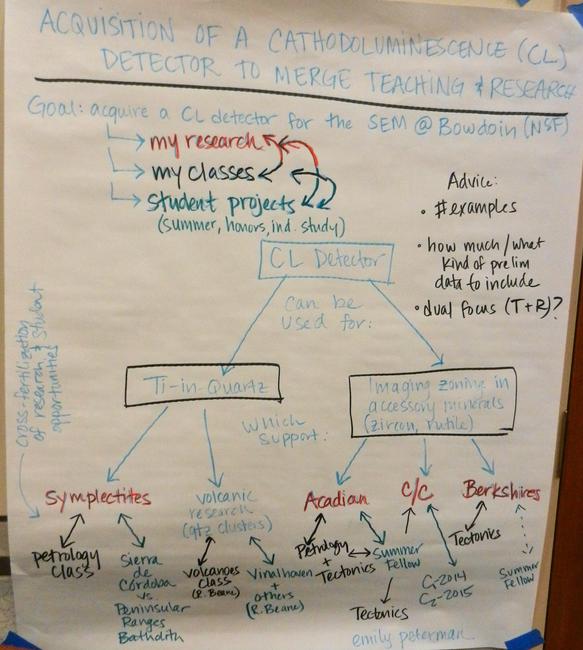 ACQUISITION OF A CATHODOLUMINESCENCE (CL)
DETECTOR TO MERGE TEACHING & RESEARCH
Goal: acquire a CL detector for the SEM @ Bowdoin (NSF)
my research
my classes
student projects
(summer, honors, ind. study)
Advice:
• # examples
• how much / what
kind of prelim
data to include
• dual focus (T+R)?
CL Detector
can be
used for:
Ti-in-Quartz
Imaging zoning in
accessory minerals
(zircon, rutile)
which
support:
cross-fertilization
of research & student
opportunities
Symplectites
volcanic
research
(qtz clusters)
Acadian
C/C
Berkshires
Petrology
Class
Sierra
de
Córdoba
vs.
Peninsular
Ranges
Batholith
Volcanoes
class
(R. Beane)
Vinalhaven
+
others
(R. Beane)
Petrology
+
Tectonics
Summer
Fellow
Tectonics
C1-2014
C2-2015
Tectonics
Summer
Fellow
emily peterman